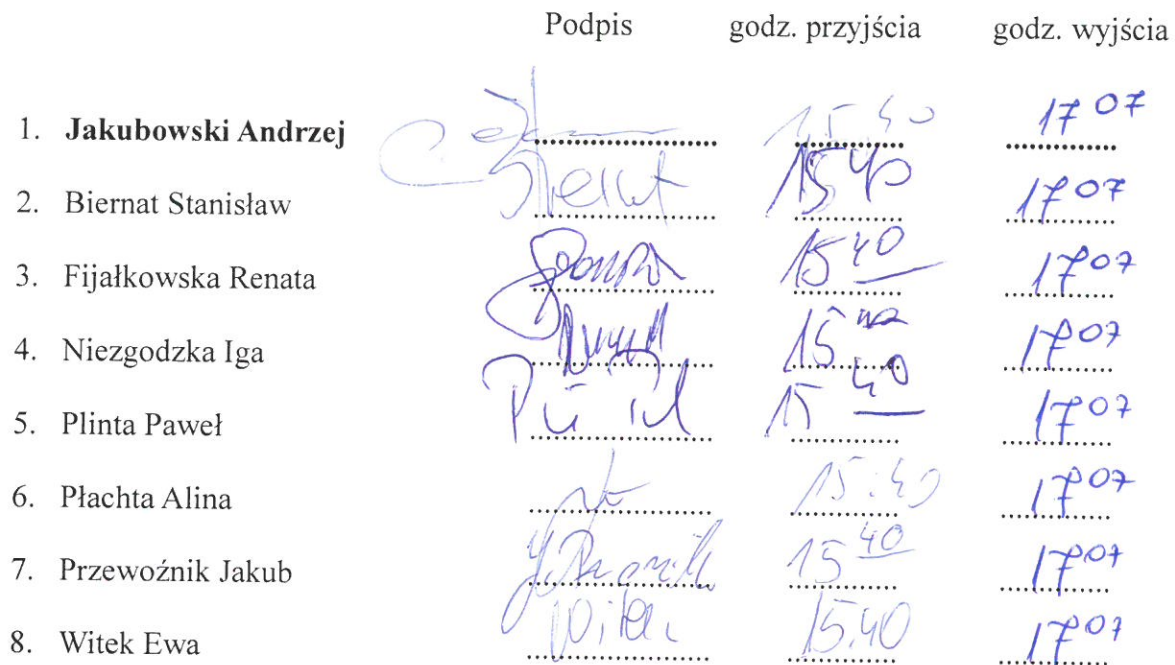 Podpis godz. przyjścia godz. wyjścia
1. Jakubowski Andrzej 15.40 17 07
2. Biernat Stanisław 15 40 17 07
3. Fijałkowska Renata 15 40 17 07
4. Niezgodzka Iga 15 17 07
5. Plinta Paweł 15 40 17 07
6. Płachta Alina 15.40 17 07
7. Przewoźnik Jakub 15 40 17 07
8. Witek Ewa Witek 15.40 17 07